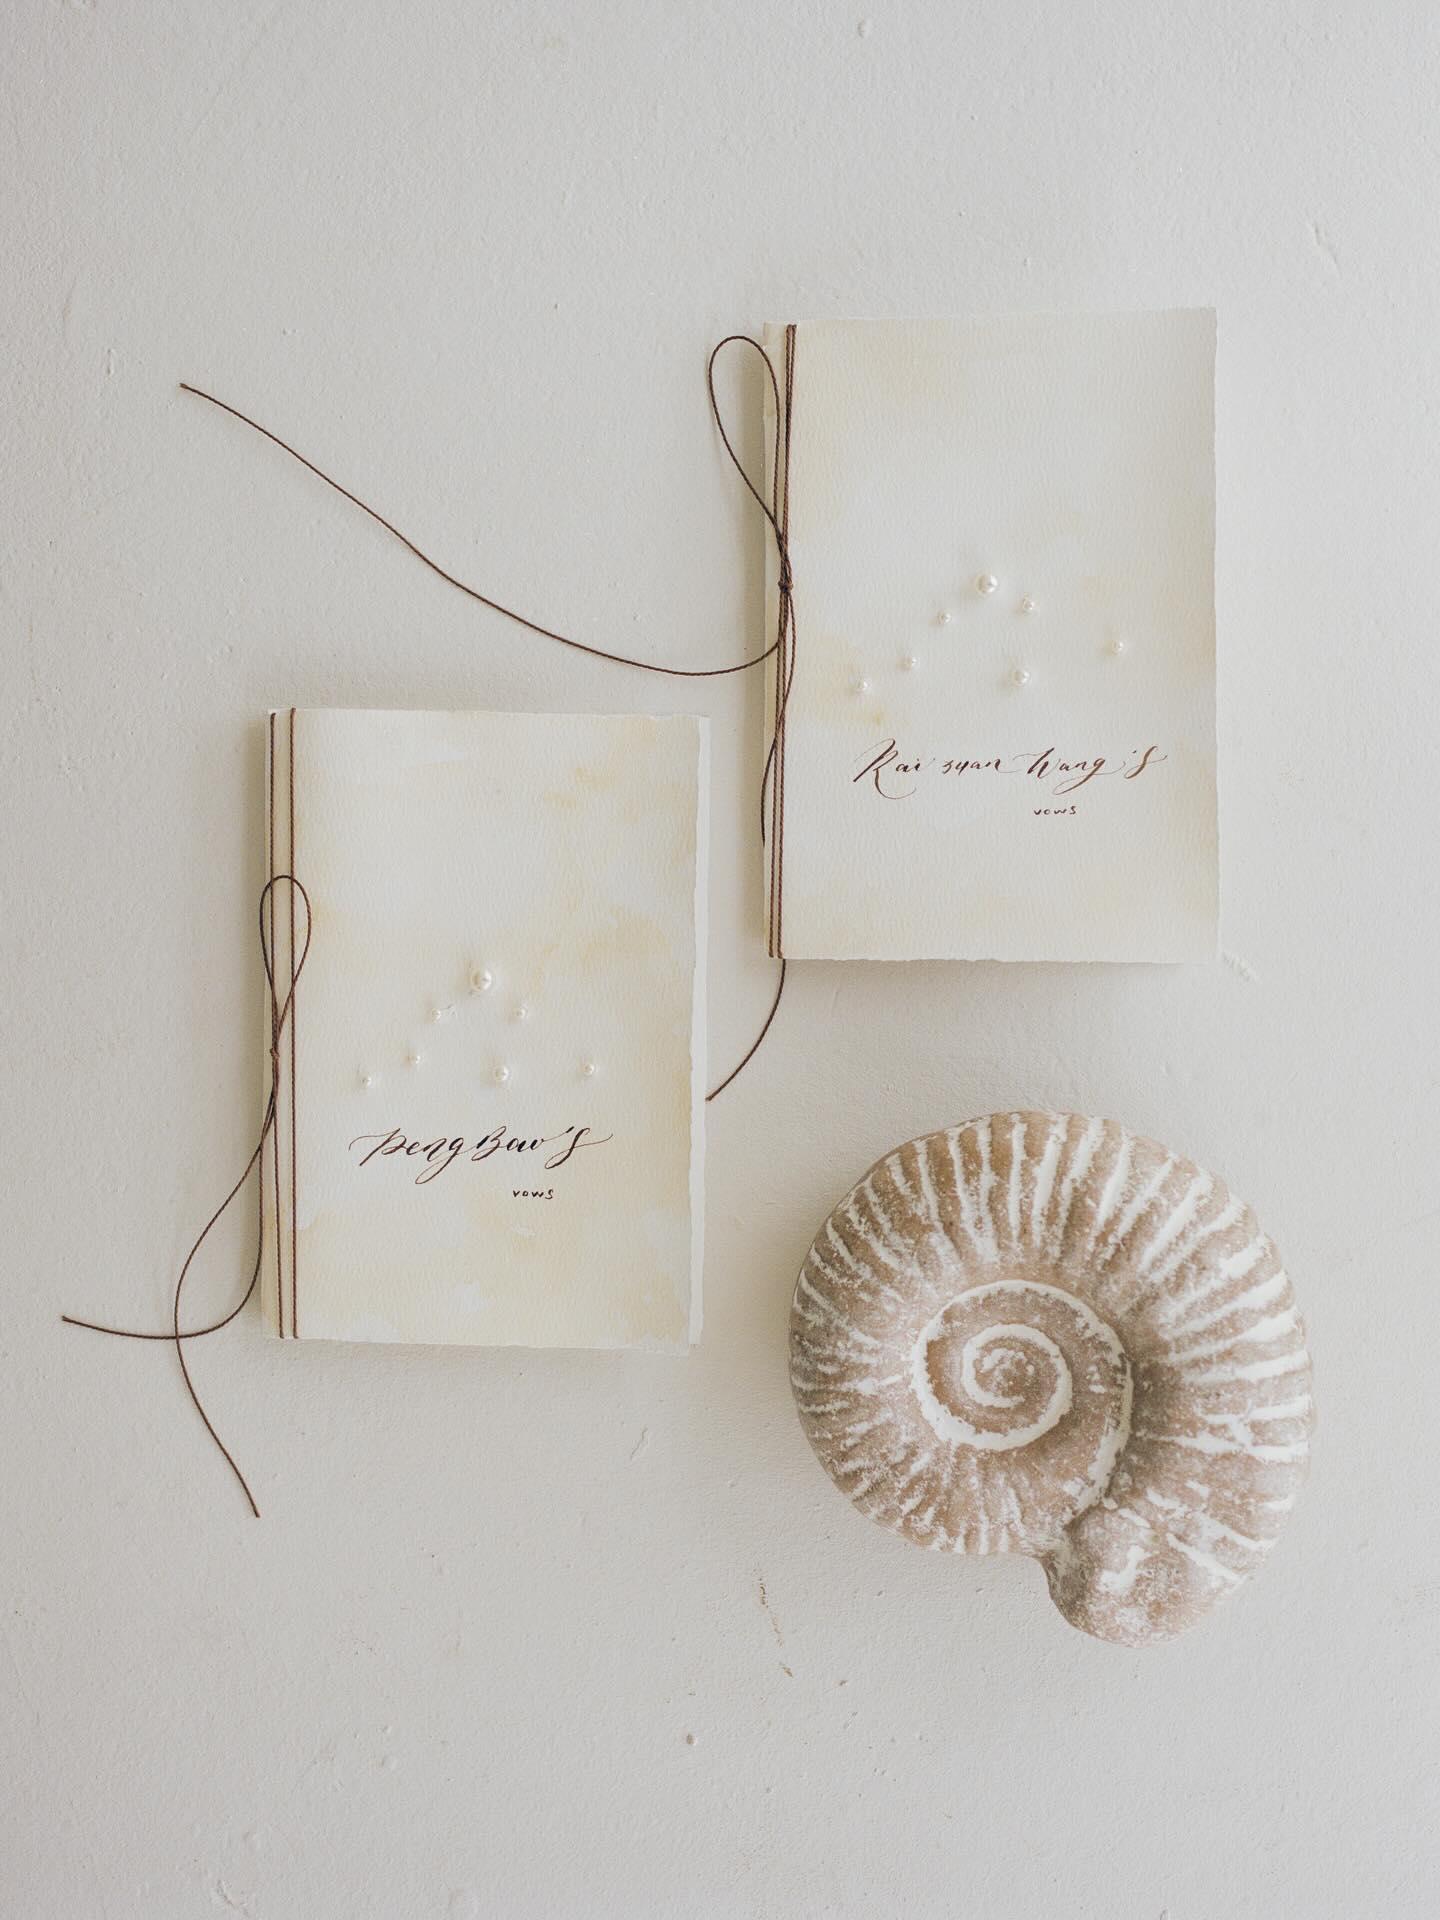 Kai yuan Wang's
vows
Peng Bow's
vows